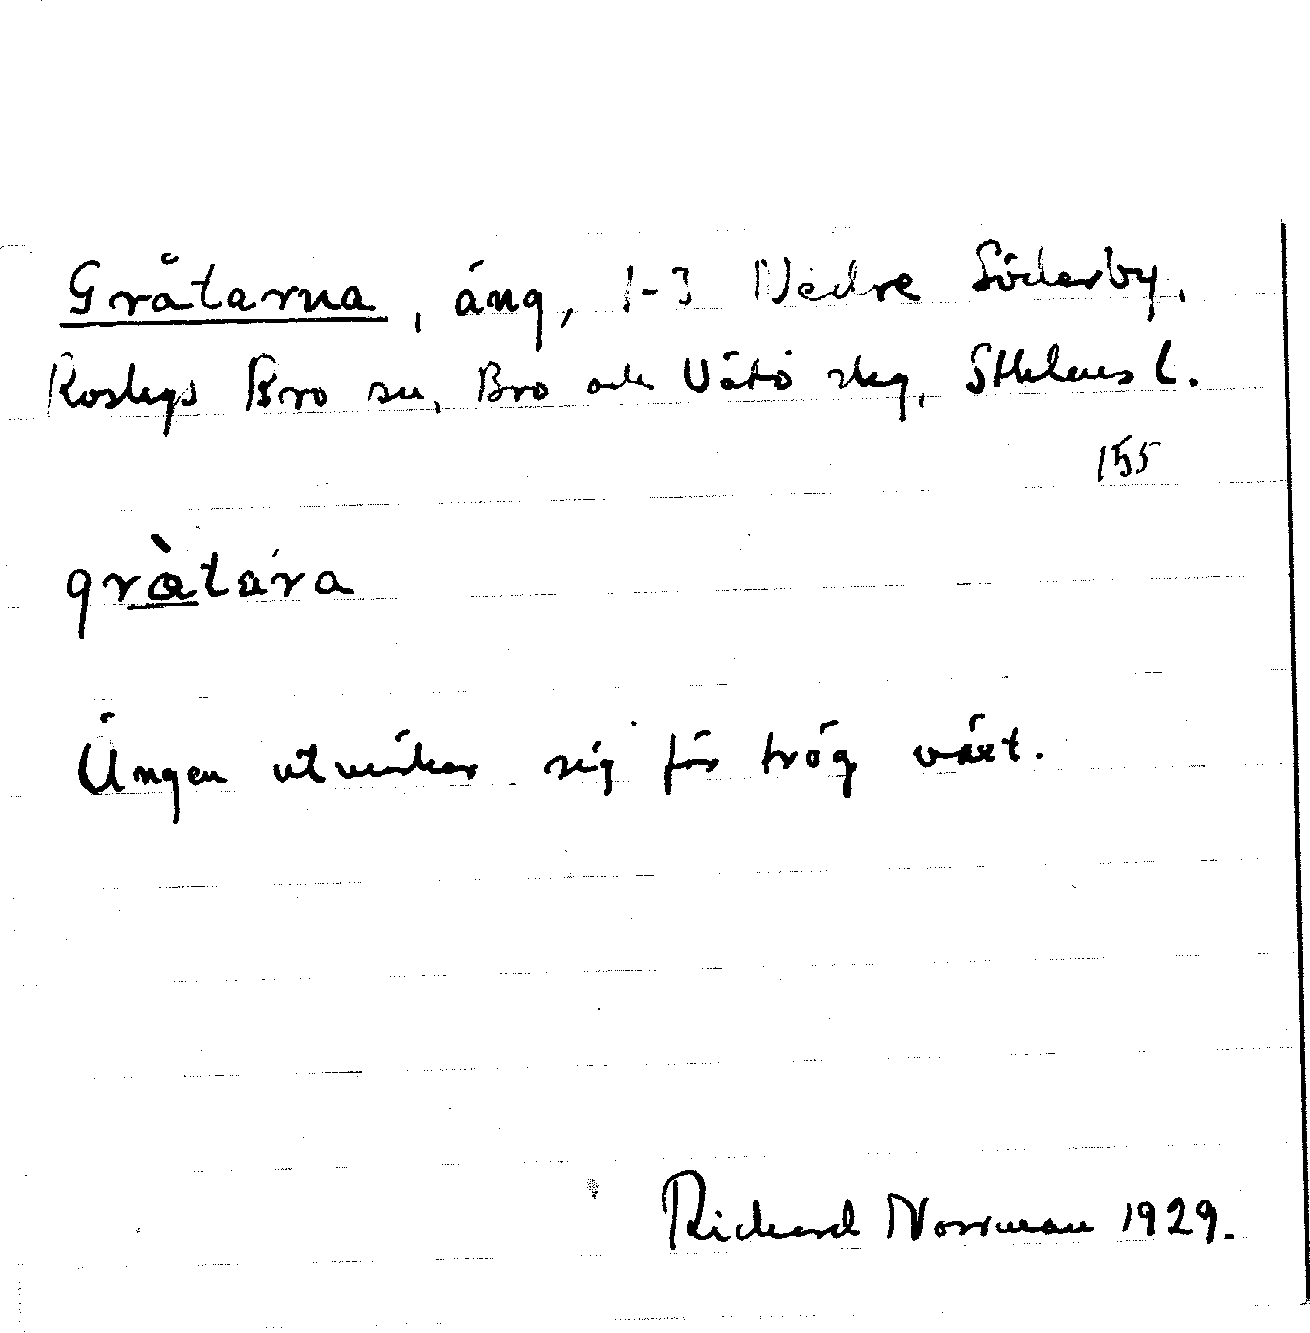 Gråtarna, äng, 1-3 Nedre Söderby,
Roslags Bro sn, Bro och Vätö skg, Sthlms l.
155
gràtára
Ängen utmärker sig för trög växt.
Richard Norrman 1929.